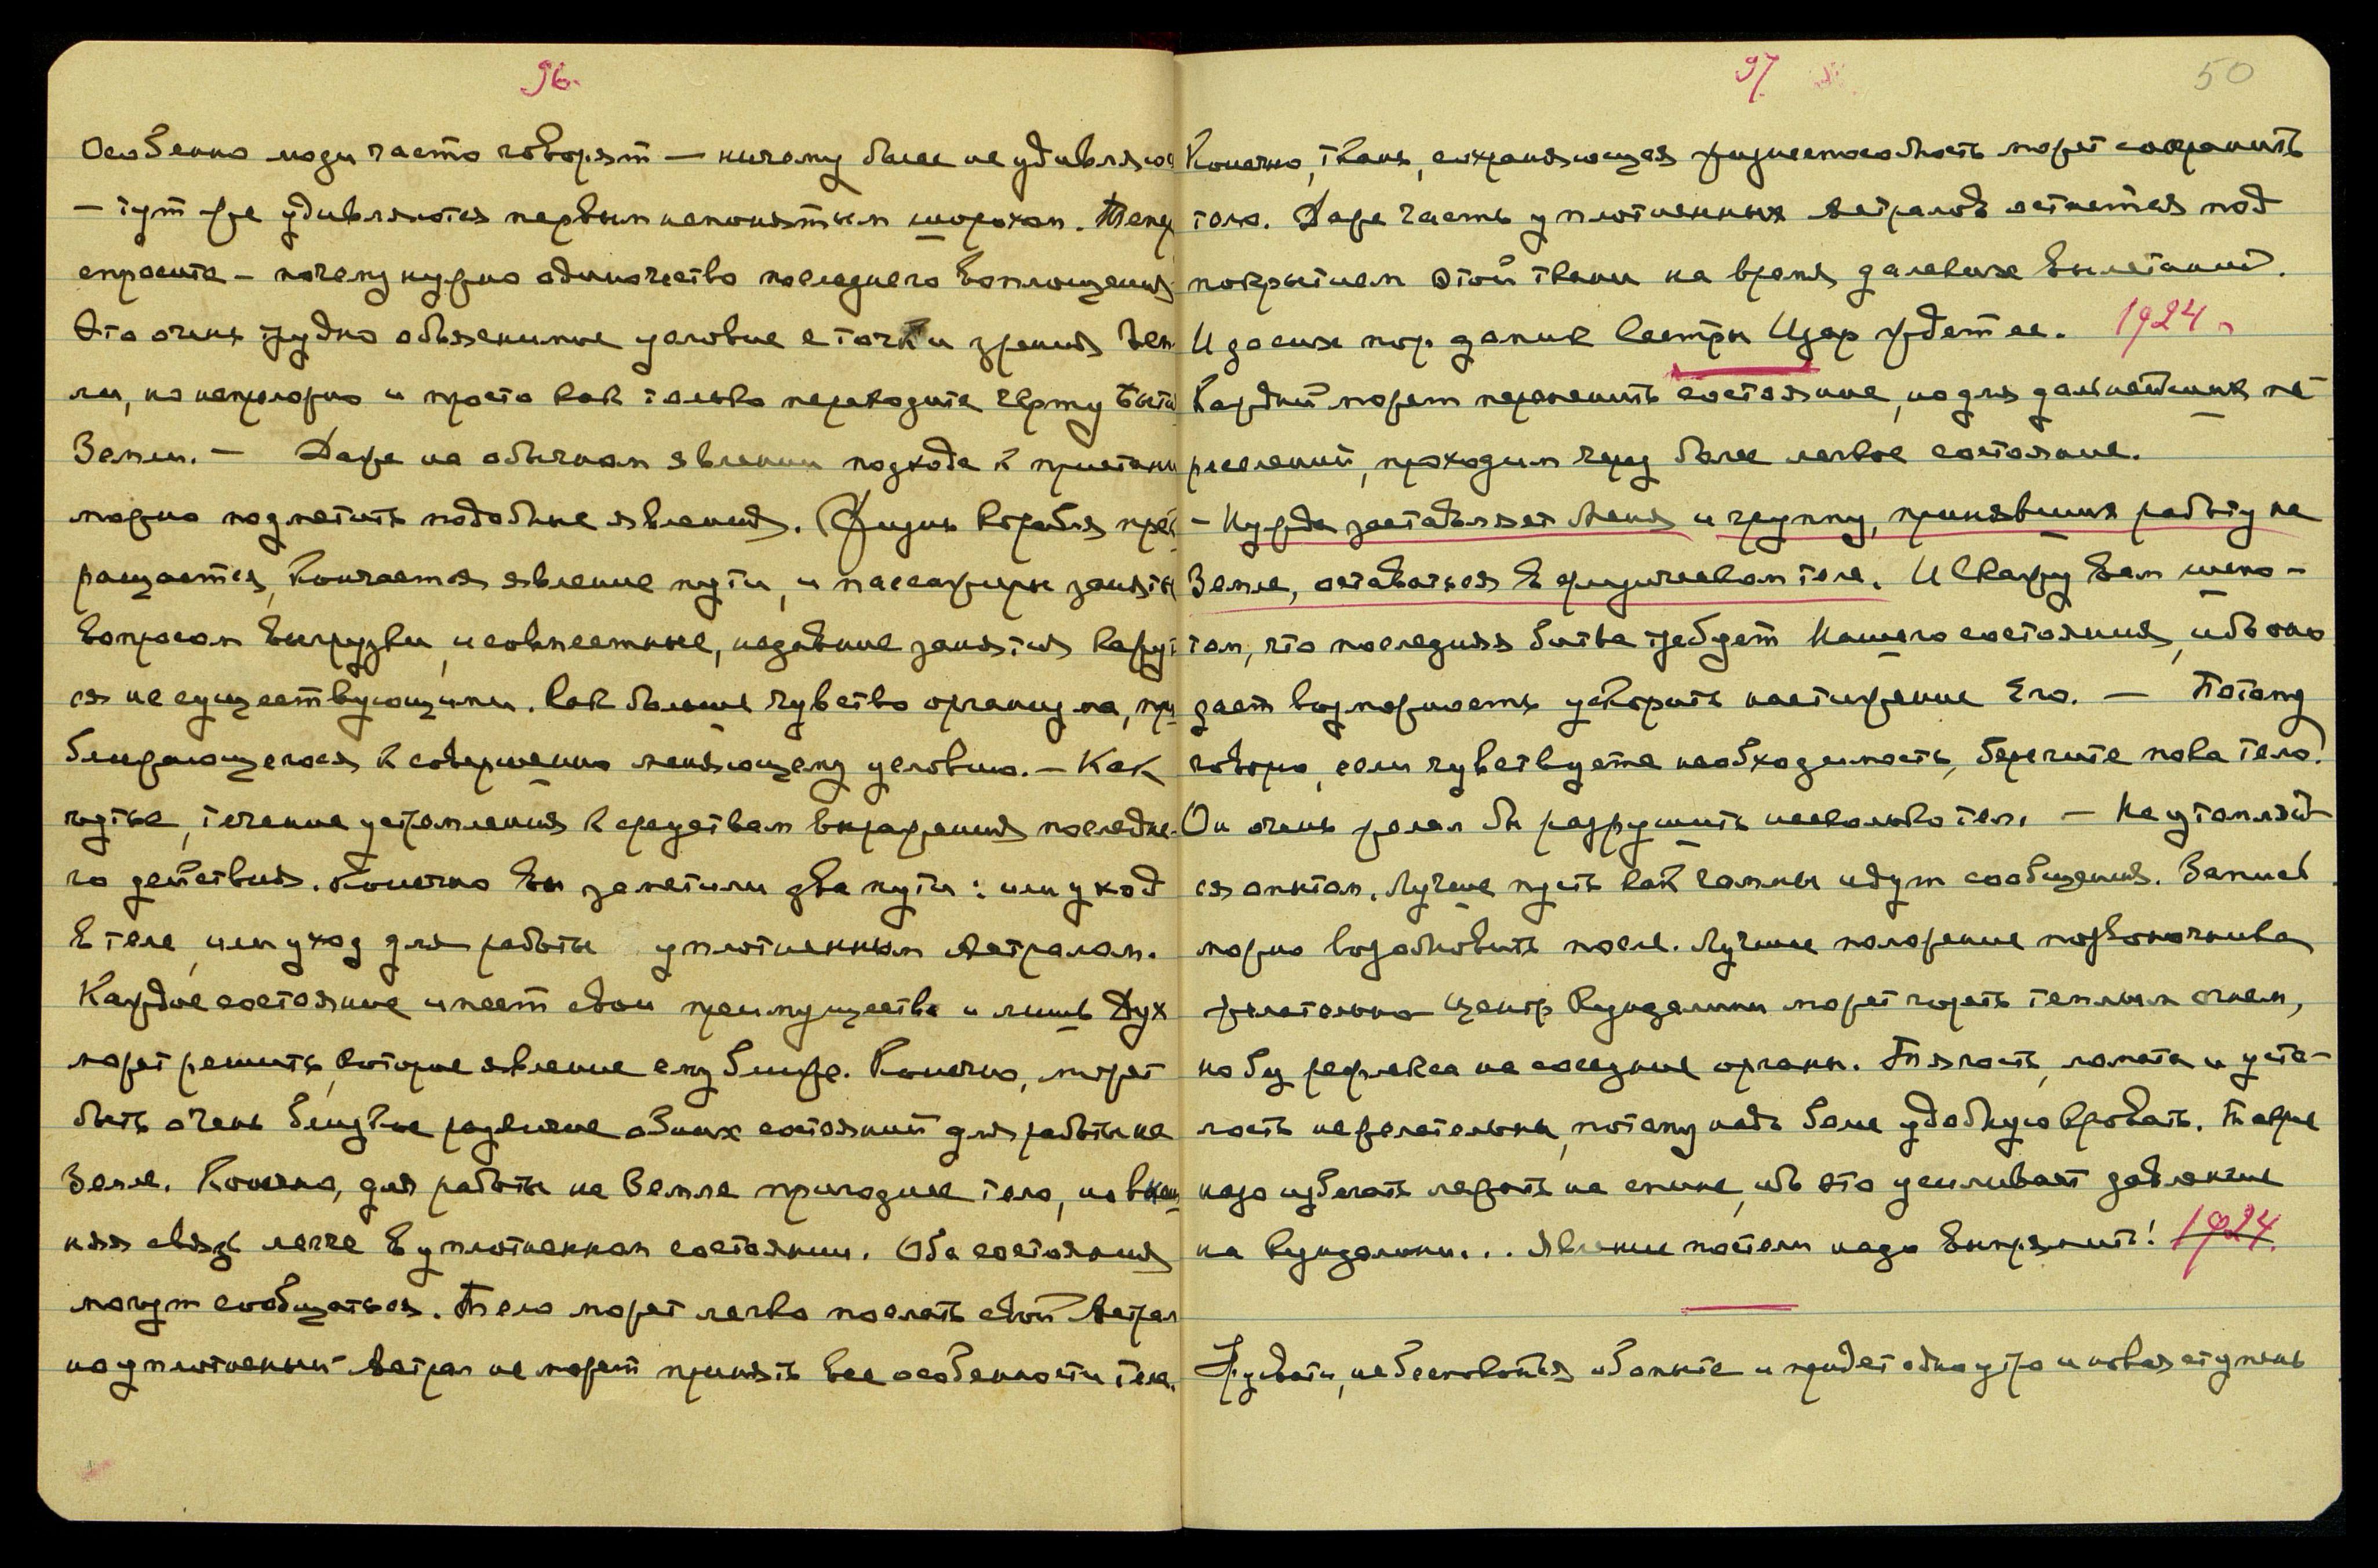 96.
Особенно люди часто говорят — ничему более не удивляюсь
— тут же удивляются первым непонятным шорохам. Теперь
спросите — почему нужно одиночество последнего воплощения
Это очень трудно объяснимое условие с точки зрения Зем
ли, но непреложно и просто как только переходите черту быта
Земли. — Даже на обычном явлении подхода к пристани
можно подметить подобные явления. Жизнь корабля прек
ращается, кончается явление пути, и пассажиры заняты
вопросом выгрузки, и совместные, недавние занятия кажут
ся не существующими. Как больше чувство организма, при
ближающегося к совершенно меняющему условию. — Как
чутье, течение устремления к средствам выражения последне
го действия. Конечно вы заметили два пути: или уход
в теле, или уход для работы уплотненным Астралом.
Каждое состояние имеет свои преимущества и лишь Дух
может решить, которое явление ему ближе. Конечно, может
быть очень близкое разделение обоих состояний для работы на
Земле. Конечно, для работы на Земле пригоднее тело, но внеш
няя связь легче в уплотненном состоянии. Оба состояния
могут сообщаться. Тело может легко послать свой Астрал
но уплотненный Астрал не может принять все особенности тела.
97. 50
Конечно, ткань, сохраняющая жизнеспособность может сохранить
тело. Даже часть уплотненных Астралов остается под
покрытием этой ткани на время далеких вылетаний.
И до сих пор даник сестры Изар ждет ее. 1924 г
Каждый может переменить состояние, но для дальнейших пе-
реселений, проходим через более легкое состояние.
— Нужда заставляет Меня и группу, принявших работу на
Земле, оставаться в физическом теле. И скажу вам шепо-
том, что последняя битва требует Нашего состояния, ибо оно
дает возможность ускорить настижение Его. — Потому
говорю, если чувствуете необходимость, берегите пока тело!
Он очень желал бы разрушить несколько тел. — Не утомляй
ся опытом. Лучше пусть как гаммы идут сообщения. Запись
можно возобновить после. Лучшее положение позвоночника
желательно Центр Кундалини может гореть теплым огнем,
но без рефлекса на соседние органы. Тяжесть, ломота и уста-
лость нежелательны, потому надо более удобную кровать. Также
надо избегать лежать на спине, ибо это усиливает давление
на Кундалини... Явление постели надо выпрямить! 1924.
Трудвати, не беспокойся об опыте и придет одно утро и новая ступень